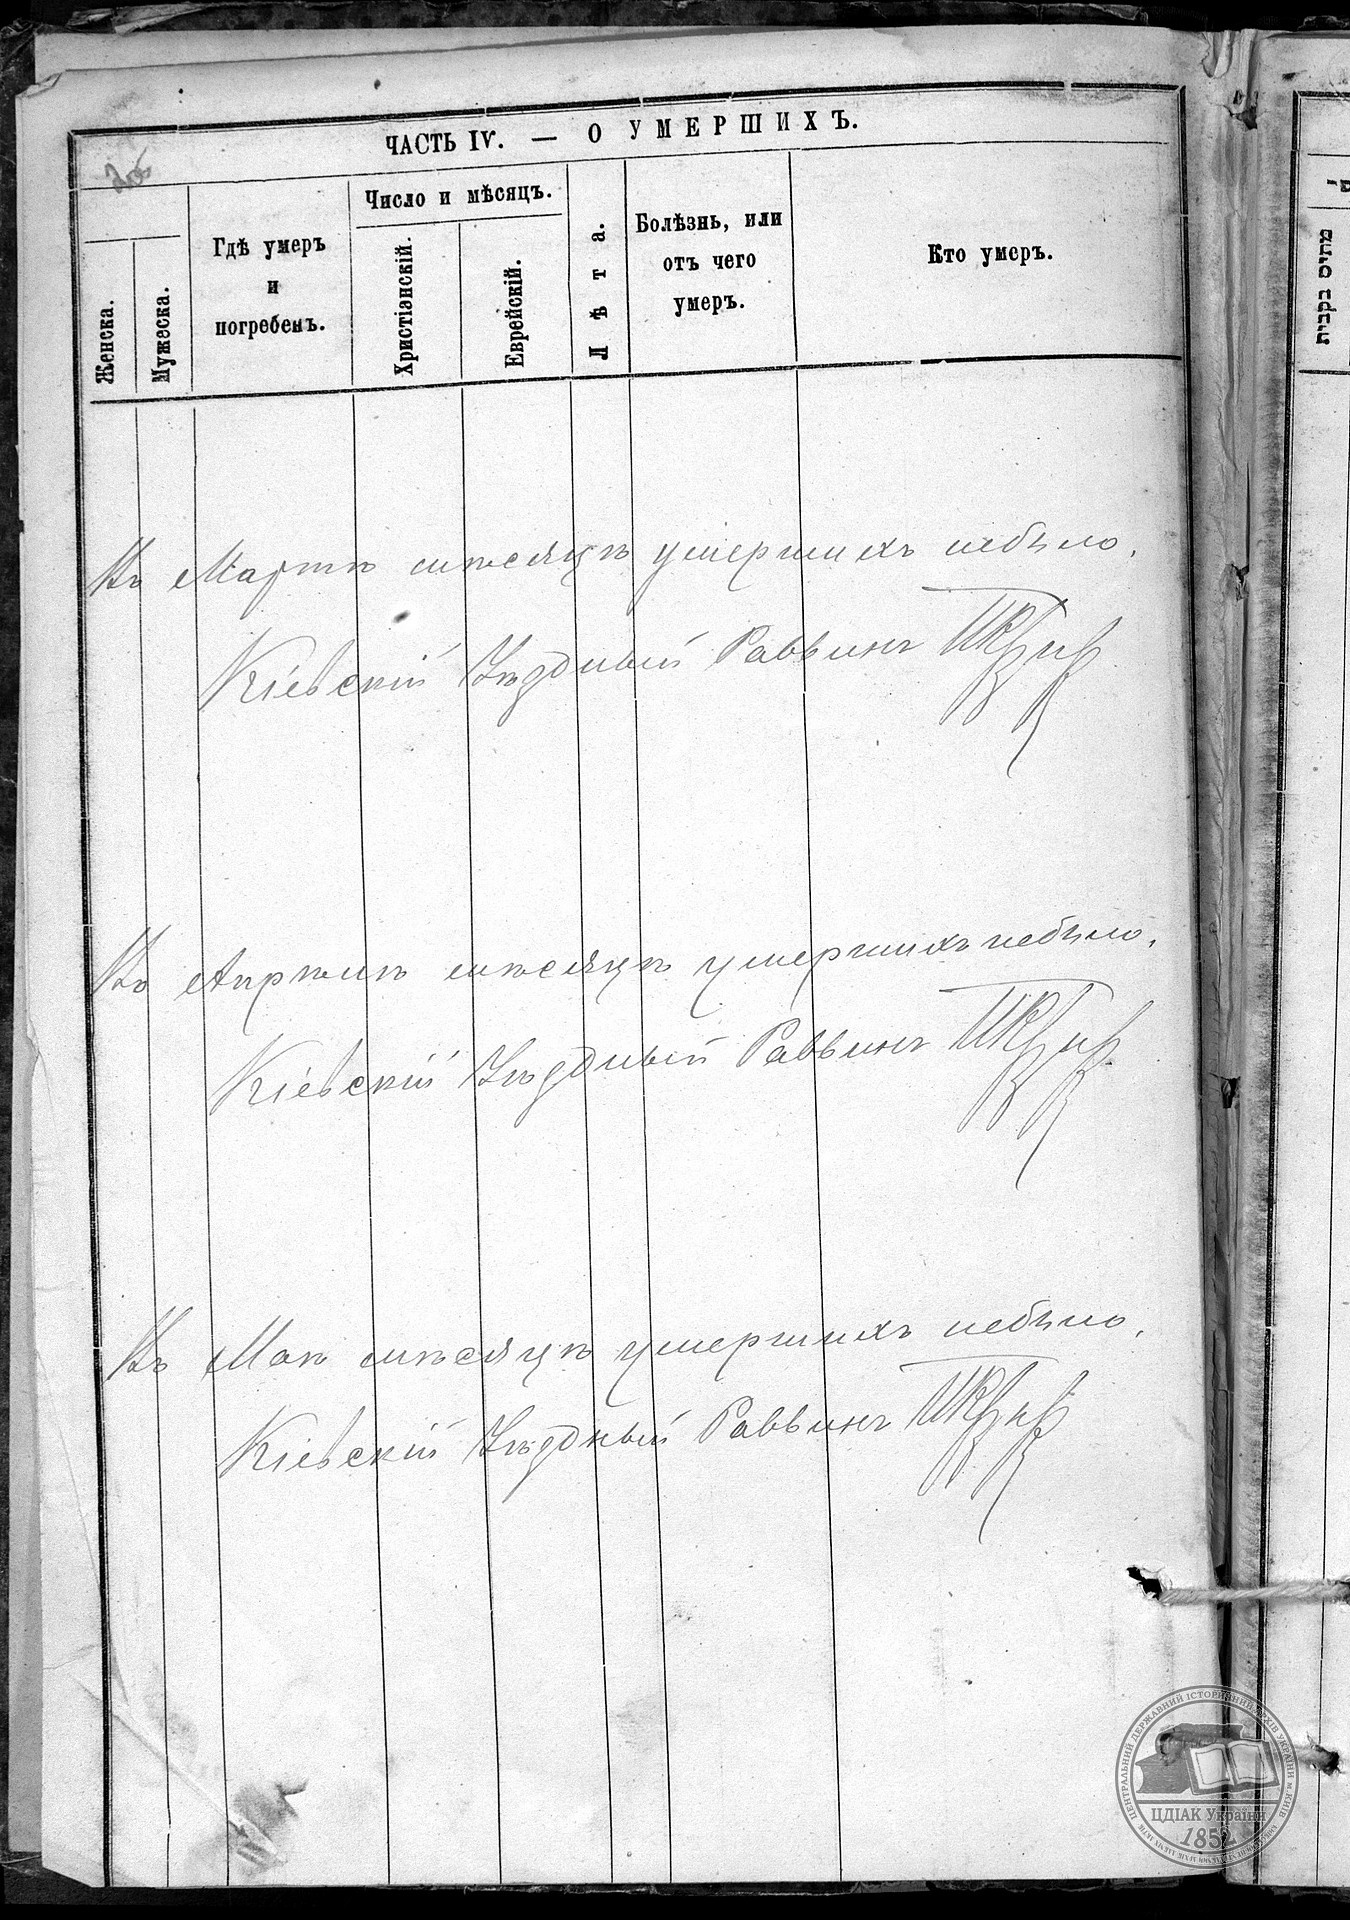 ЧАСТЬ IV. — О УМЕРШИХЪ.
Женска.
Мужеска.
Гдѣ умеръ
и
погребенъ.
Число и мѣсяцъ.
Христіанскій.
Еврейскій.
Лѣта.
Болѣзнь, или
отъ чего
умеръ.
Кто умеръ.
מתים בקבית
Въ Мартѣ мѣсяцѣ умершихъ небыло.
Кіевскій Уѣздный Раввинъ
Въ Апрѣлѣ мѣсяцѣ умершихъ небыло.
Кіевскій Уѣздный Раввинъ
Въ Маѣ мѣсяцѣ умершихъ небыло.
Кіевскій Уѣздный Раввинъ
ЦЕНТРАЛЬНИЙ ДЕРЖАВНИЙ ІСТОРИЧНИЙ АРХІВ УКРАЇНИ м. КИЇВ
ЦДІАК України
1852